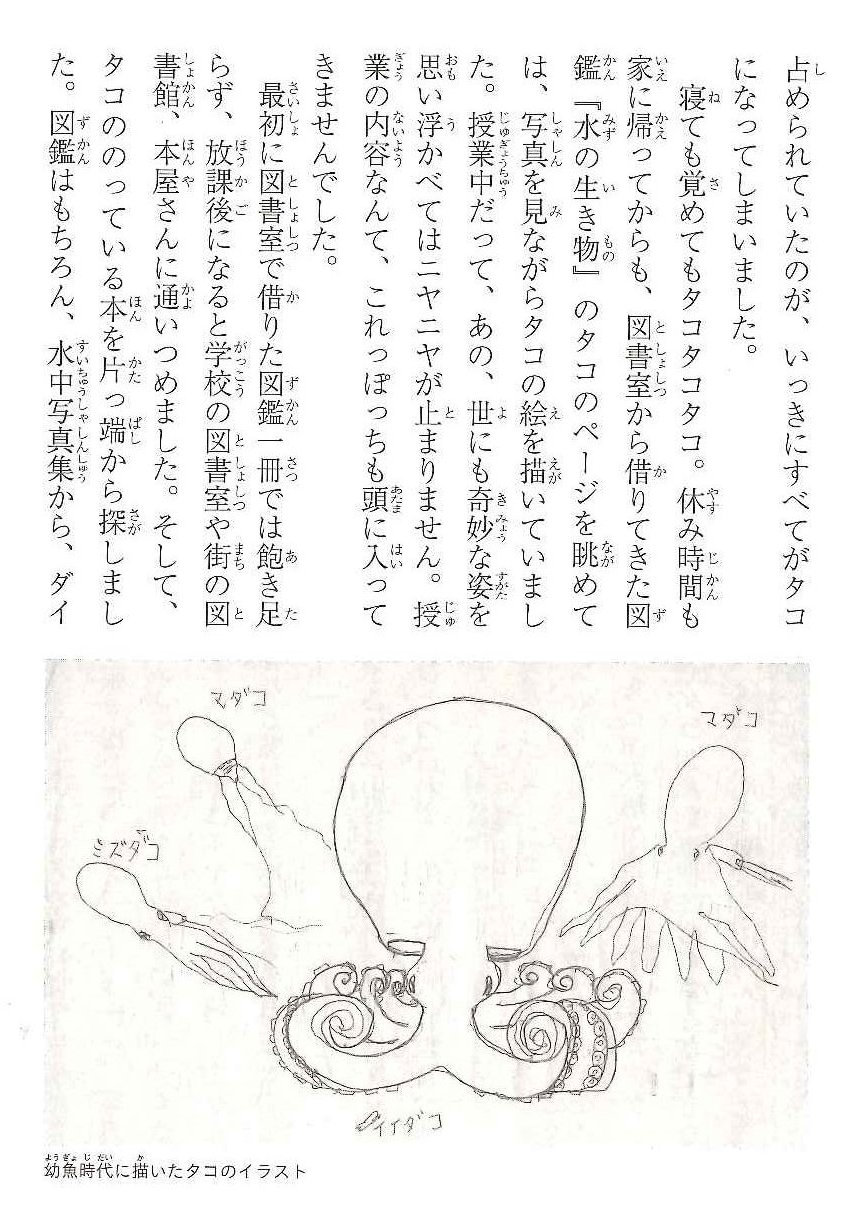 占められていたのが、いっきにすべてがタコ
になってしまいました。
寝ても覚めてもタコタコタコ。休み時間も
家に帰ってからも、図書室から借りてきた図
鑑『水の生き物』のタコのページを眺めて
は、写真を見ながらタコの絵を描いていまし
た。授業中だって、あの、世にも奇妙な姿を
思い浮かべてはニヤニヤが止まりません。授
業の内容なんて、これっぽっちも頭に入って
きませんでした。
最初に図書室で借りた図鑑一冊では飽き足
らず、放課後になると学校の図書室や街の図
書館、本屋さんに通いつめました。そして、
タコののっている本を片っ端から探しまし
た。図鑑はもちろん、水中写真集から、ダイ
マダコ
マダコ
ミズダコ
イイダコ
幼魚時代に描いたタコのイラスト